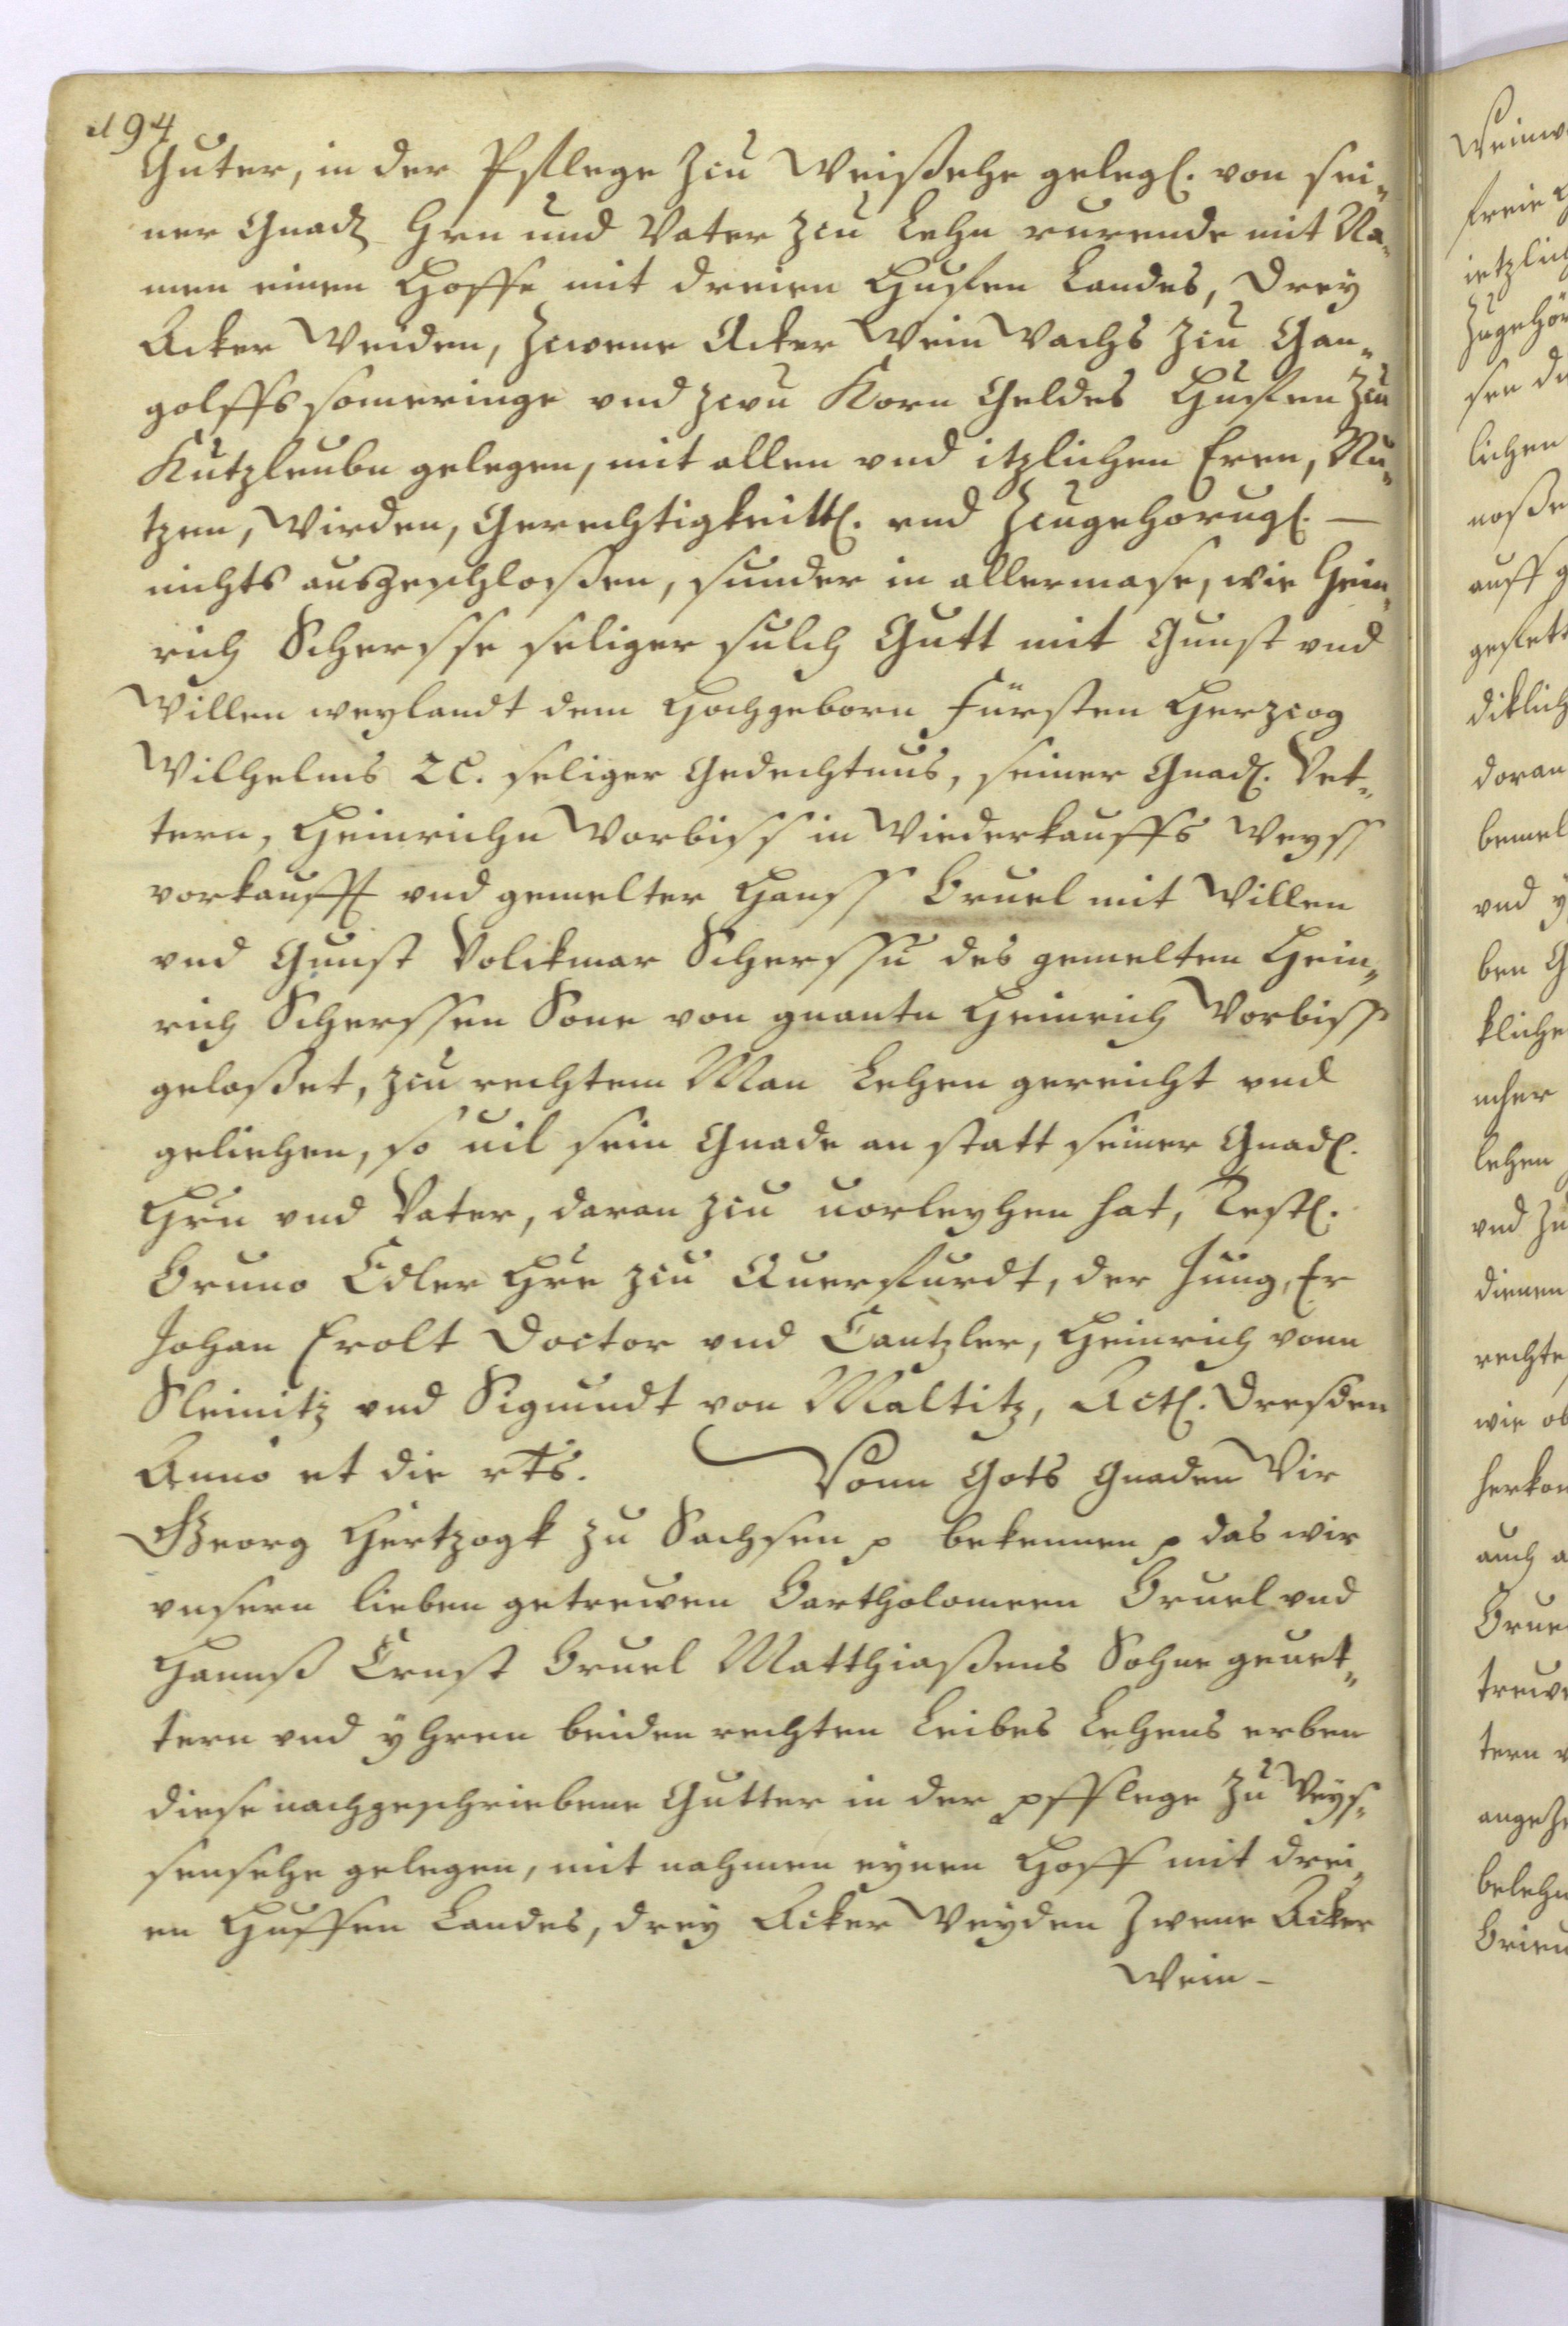 194
Guter, in der Pflege Zcu Weißesehe gelegẽ. von sei„
ner Gnadẽ Hrn und Vater zcu Lehn rurende mit Na„
men einen Hoffe mit dreien Hufen Landes, Drey
Acker Weiden, Zcwene Acker Wein Wachs zcu Gan„
golffs someringe vnd zcwu Korn Geldes Hufen zcu
Kutzleubn gelegen, mit allen vnd itzlichen Eren, Nu„
tzen, Wirden, Gerechtigkeittẽ. vnd Zcugehorugẽ. —
nichts ausgeschloßen, sunder in allermase, wie Hein„
rich Scherffe seliger sulch Gutt mit Gunst vnd
Willen weylandt dem Hochgeborn Fürsten Herzcog
Wilhelms ꝛc. seliger Gedechtnus, seiner Gnadẽ. Vet„
tern, Heinrichn Worbiss in Wiederkauffs Weyss
vorkaufft vnd gemelter Hanss Bruel mit Willen
vnd Gunst Volckmar Scherffn des gemelten Hein„
rich Scherffen Sone von gnantn Heinrich Worbiss
geloßet, zcu rechtem Man Lehen gereicht vnd
geliehen, so uil sein Gnade an statt seiner Gnadẽ.
Hrn vnd Vater, daran zcu uorleyhen hat, Testẽ.
Bruno Edler Hre zcu Querfurdt, der Jung, Er
Johan Erolt Doctor vnd Cantzler, Heinrich vonn
Sleinitz vnd Sigmundt von Maltitz, Actẽ. Dresden
Anno et die rts. Vonn Gots Gnaden Wir
Georg Hertzogk zu Sachsen p bekennen p das wir
vnsern lieben getrewen Bartholomeen Bruel vnd
Hannß Ernst Bruel Matthiaßens Sohne geuet„
tern vnd yhren beiden rechten Leibes Lehens erben
diese nachgeschriebene Gutter in der pfflege zu Weys„
sensehe gelegen, mit nahmen eynen Hoff mit drei„
en Huffen Landes, drey Acker Weyden Zwene Acker
Wein-